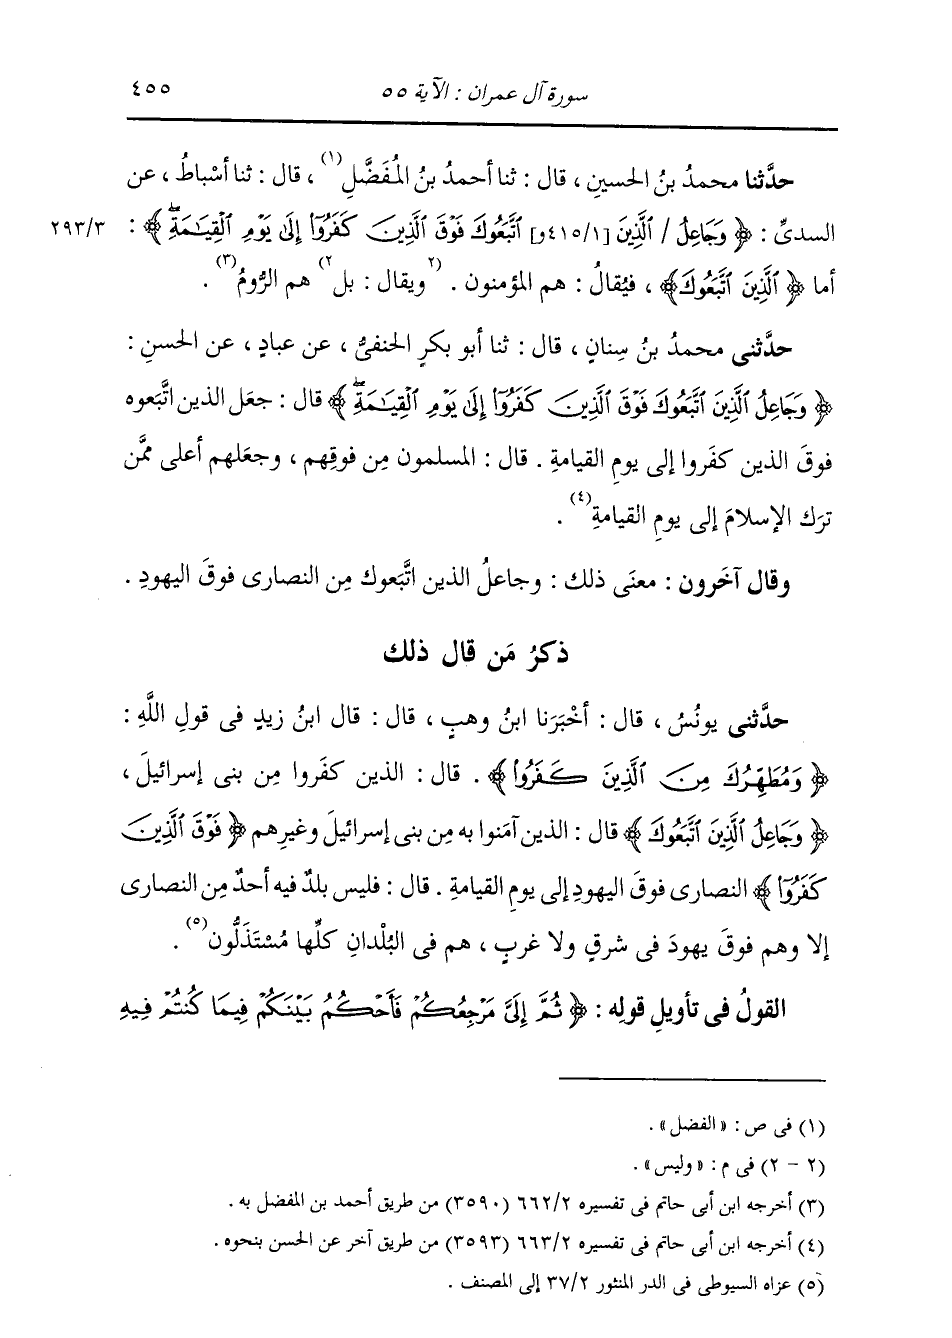 سورة آل عمران : الآية ٥٥ ٤٥٥
حدَّثنا محمدُ بنُ الحسينِ ، قال : ثنا أحمدُ بنُ المُفَضَّلِ(١) ، قال : ثنا أسْباطُ ، عن
السدىِّ : ﴿ وَجَاعِلُ / ٱلَّذِينَ [٤١٥/١و] ٱتَّبَعُوكَ فَوْقَ ٱلَّذِينَ كَفَرُوٓا۟ إِلَىٰ يَوْمِ ٱلْقِيَـٰمَةِۖ ﴾ : ٢٩٣/٣
أما ﴿ ٱلَّذِينَ ٱتَّبَعُوكَ﴾ ، فيُقالُ : هم المؤمنون . (٢ويقال : بل٢) هم الرُّومُ(٣) .
حدَّثنى محمدُ بنُ سِنانٍ ، قال : ثنا أبو بكرٍ الحنفىُّ ، عن عبادٍ ، عن الحسنِ :
﴿ وَجَاعِلُ ٱلَّذِينَ ٱتَّبَعُوكَ فَوْقَ ٱلَّذِينَ كَفَرُوٓا۟ إِلَىٰ يَوْمِ ٱلْقِيَـٰمَةِۖ ﴾ قال : جعَل الذين اتَّبَعوه
فوقَ الذين كفَروا إلى يومِ القيامةِ . قال : المسلمون مِن فوقِهم ، وجعَلهم أعلى ممَّن
ترَك الإسلامَ إلى يومِ القيامةِ(٤) .
وقال آخَرون : معنَى ذلك : وجاعلُ الذين اتَّبَعوك مِن النصارى فوقَ اليهودِ .
ذكرُ مَن قال ذلك
حدَّثنى يونُسُ ، قال : أخْبَرَنا ابنُ وهبٍ ، قال : قال ابنُ زيدٍ فى قولِ اللَّهِ :
﴿ وَمُطَهِّرُكَ مِنَ ٱلَّذِينَ كَفَرُوا۟ ﴾ . قال : الذين كفَروا مِن بنى إسرائيلَ ،
﴿ وَجَاعِلُ ٱلَّذِينَ ٱتَّبَعُوكَ ﴾ قال : الذين آمَنوا به مِن بنى إسرائيلَ وغيرِهم ﴿ فَوْقَ ٱلَّذِينَ
كَفَرُوٓا۟ ﴾ النصارى فوقَ اليهودِ إلى يومِ القيامةِ . قال : فليس بلدٌ فيه أحدٌ مِن النصارى
إلا وهم فوقَ يهودَ فى شرقٍ ولا غربٍ ، هم فى البُلْدانِ كلِّها مُسْتَذَلُّون(٥) .
القولُ فى تأويلِ قولِه : ﴿ ثُمَّ إِلَىَّ مَرْجِعُكُمْ فَأَحْكُمُ بَيْنَكُمْ فِيمَا كُنتُمْ فِيهِ
(١) فى ص : « الفضل » .
(٢ - ٢) فى م : « وليس » .
(٣) أخرجه ابن أبى حاتم فى تفسيره ٦٦٢/٢ (٣٥٩٠) من طريق أحمد بن المفضل به .
(٤) أخرجه ابن أبى حاتم فى تفسيره ٦٦٣/٢ (٣٥٩٣) من طريق آخر عن الحسن بنحوه .
(٥) عزاه السيوطى فى الدر المنثور ٣٧/٢ إلى المصنف .